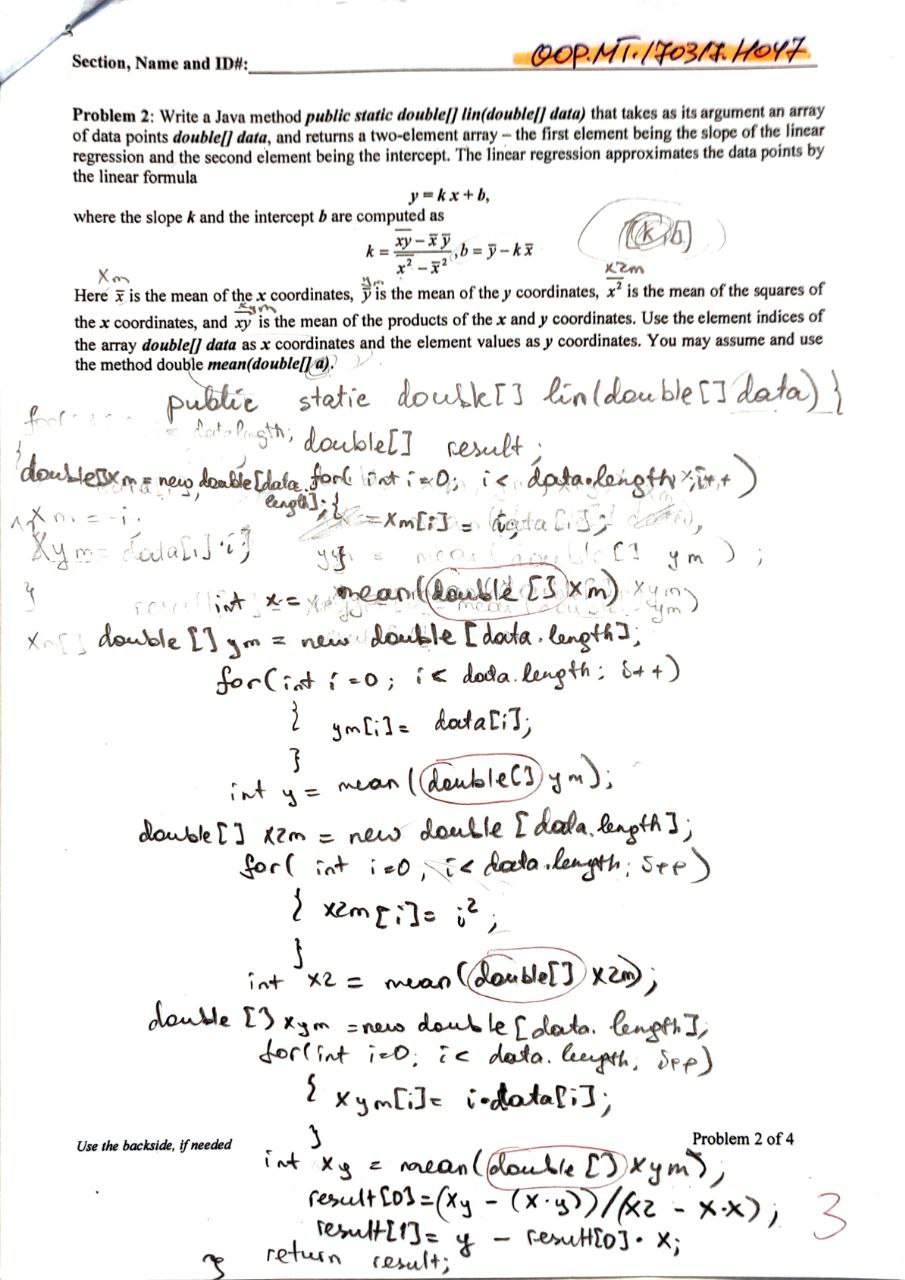 Section, Name and ID#: OOP.MT.170317.H047
Problem 2: Write a Java method public static double[] lin(double[] data) that takes as its argument an array
of data points double[] data, and returns a two-element array – the first element being the slope of the linear
regression and the second element being the intercept. The linear regression approximates the data points by
the linear formula
y = k x + b,
where the slope k and the intercept b are computed as
[k, b]
k = (x̅y̅ - x̄ ȳ) / (x̅²̅ - x̄²), b = ȳ - k x̄
xm ym x2m
Here x̄ is the mean of the x coordinates, ȳ is the mean of the y coordinates, x̅²̅ is the mean of the squares of
xym
the x coordinates, and x̅y̅ is the mean of the products of the x and y coordinates. Use the element indices of
the array double[] data as x coordinates and the element values as y coordinates. You may assume and use
the method double mean(double[] a).
public static double[] lin(double[] data) {
double[] result;
double[] xm = new double[data.length]; for( int i=0; i< data.length; i++)
{ xm[i] = i;
}
int x = mean(double[] xm)
double[] ym = new double [data.length];
for(int i=0; i< data.length; i++)
{ ym[i]= data[i];
}
int y = mean(double[] ym);
double[] x2m = new double [data.length];
for( int i=0, i< data.length; i++)
{ x2m[i]= i²;
}
int x2 = mean(double[] x2m);
double [] xym = new double [data.length];
for(int i=0; i< data.length; i++)
{ xym[i]= i·data[i];
}
Use the backside, if needed
Problem 2 of 4
int xy = mean(double[] xym);
result[0]=(xy - (x·y))/(x2 - x·x);
result[1]= y - result[0]· x;
return result;
}
3